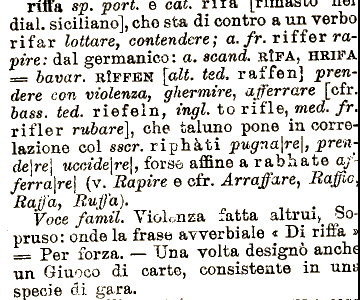 riffa sp. port. e cat. rifa [rimasto nel
dial. siciliano], che sta di contro a un verbo
rifar lottare, contendere; a. fr. riffer ra-
pire: dal germanico: a. scand. RÎFA, HRIFA
= bavar. RÎFFEN [alt. ted. raffen] pren-
dere con violenza, ghermire, afferrare [cfr.
bass. ted. riefeln, ingl. to rifle, med. fr.
rifler rubare], che taluno pone in corre-
lazione col sscr. riphàti pugna|re|, pren-
de|re| uccide|re|, forse affine a rabhate af-
ferra|re| (v. Rapire e cfr. Arraffare, Raffio,
Raffa, Ruffa).
Voce famil. Violenza fatta altrui, So-
pruso: onde la frase avverbiale « Di riffa »
= Per forza. — Una volta designò anche
un Giuoco di carte, consistente in una
specie di gara.